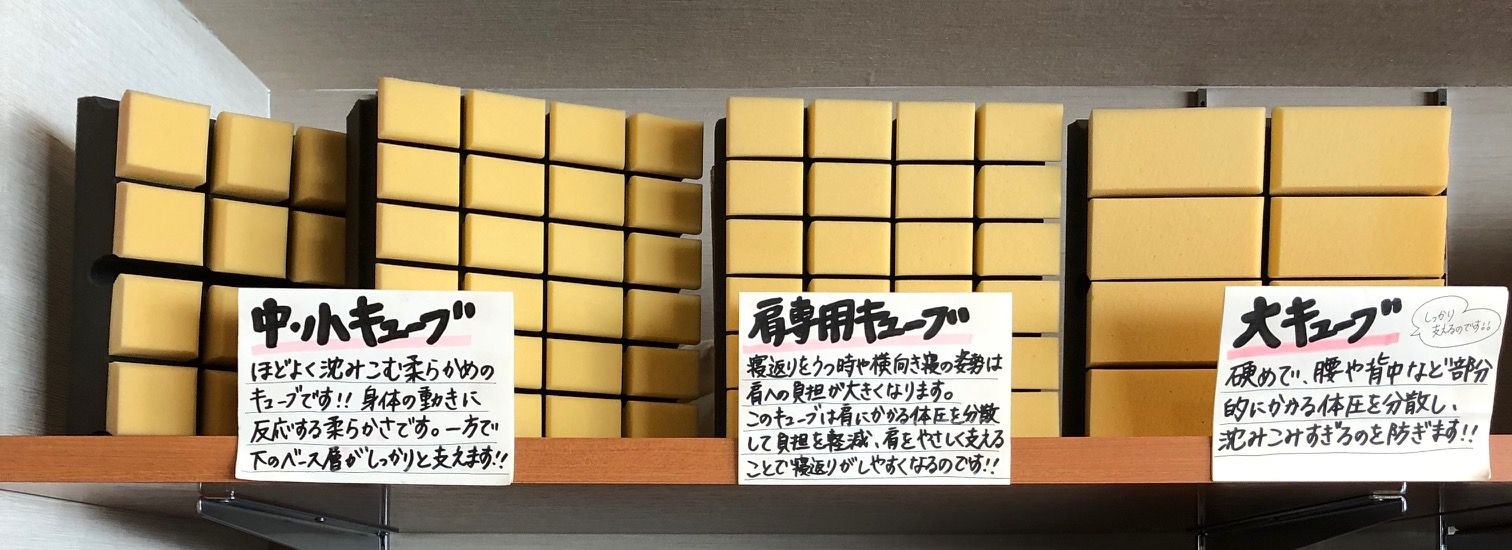 中・小キューブ
ほどよく沈みこむ柔らかめの
キューブです!! 身体の動きに
反応する柔らかさです。一方で
下のベース層がしっかりと支えます!!
肩専用キューブ
寝返りをうつ時や横向き寝の姿勢は
肩への負担が大きくなります。
このキューブは肩にかかる体圧を分散
して負担を軽減、肩をやさしく支える
ことで寝返りがしやすくなるのです!!
大キューブ
しっかり
支えるのです!!
硬めで、腰や背中など部分
的にかかる体圧を分散し、
沈みこみすぎるのを防ぎます!!